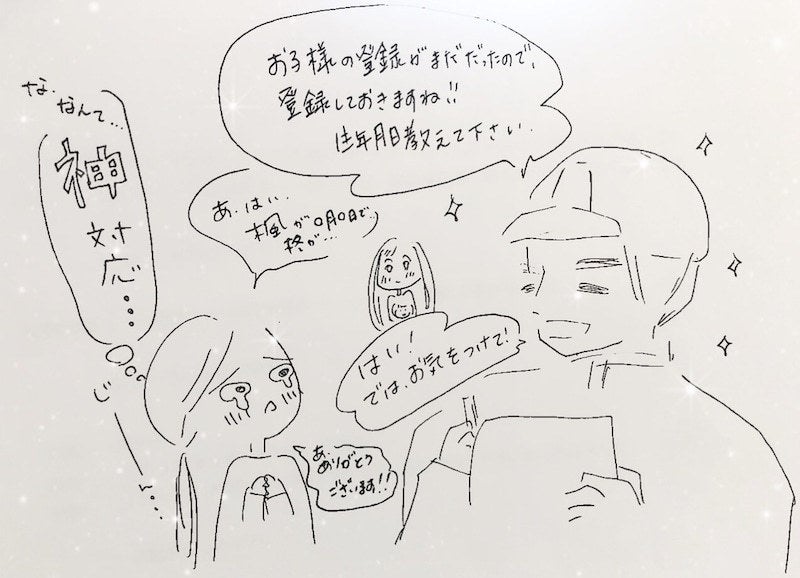 お子様の登録がまだだったので、
登録しておきますね!!
生年月日教えて下さい.
あ.はい..
楓が〇月〇日で..
柊が...
はい!
では、お気をつけて!
あ.
ありがとう
ございます!!
な.なんて...
神
対
応...
じーーん...